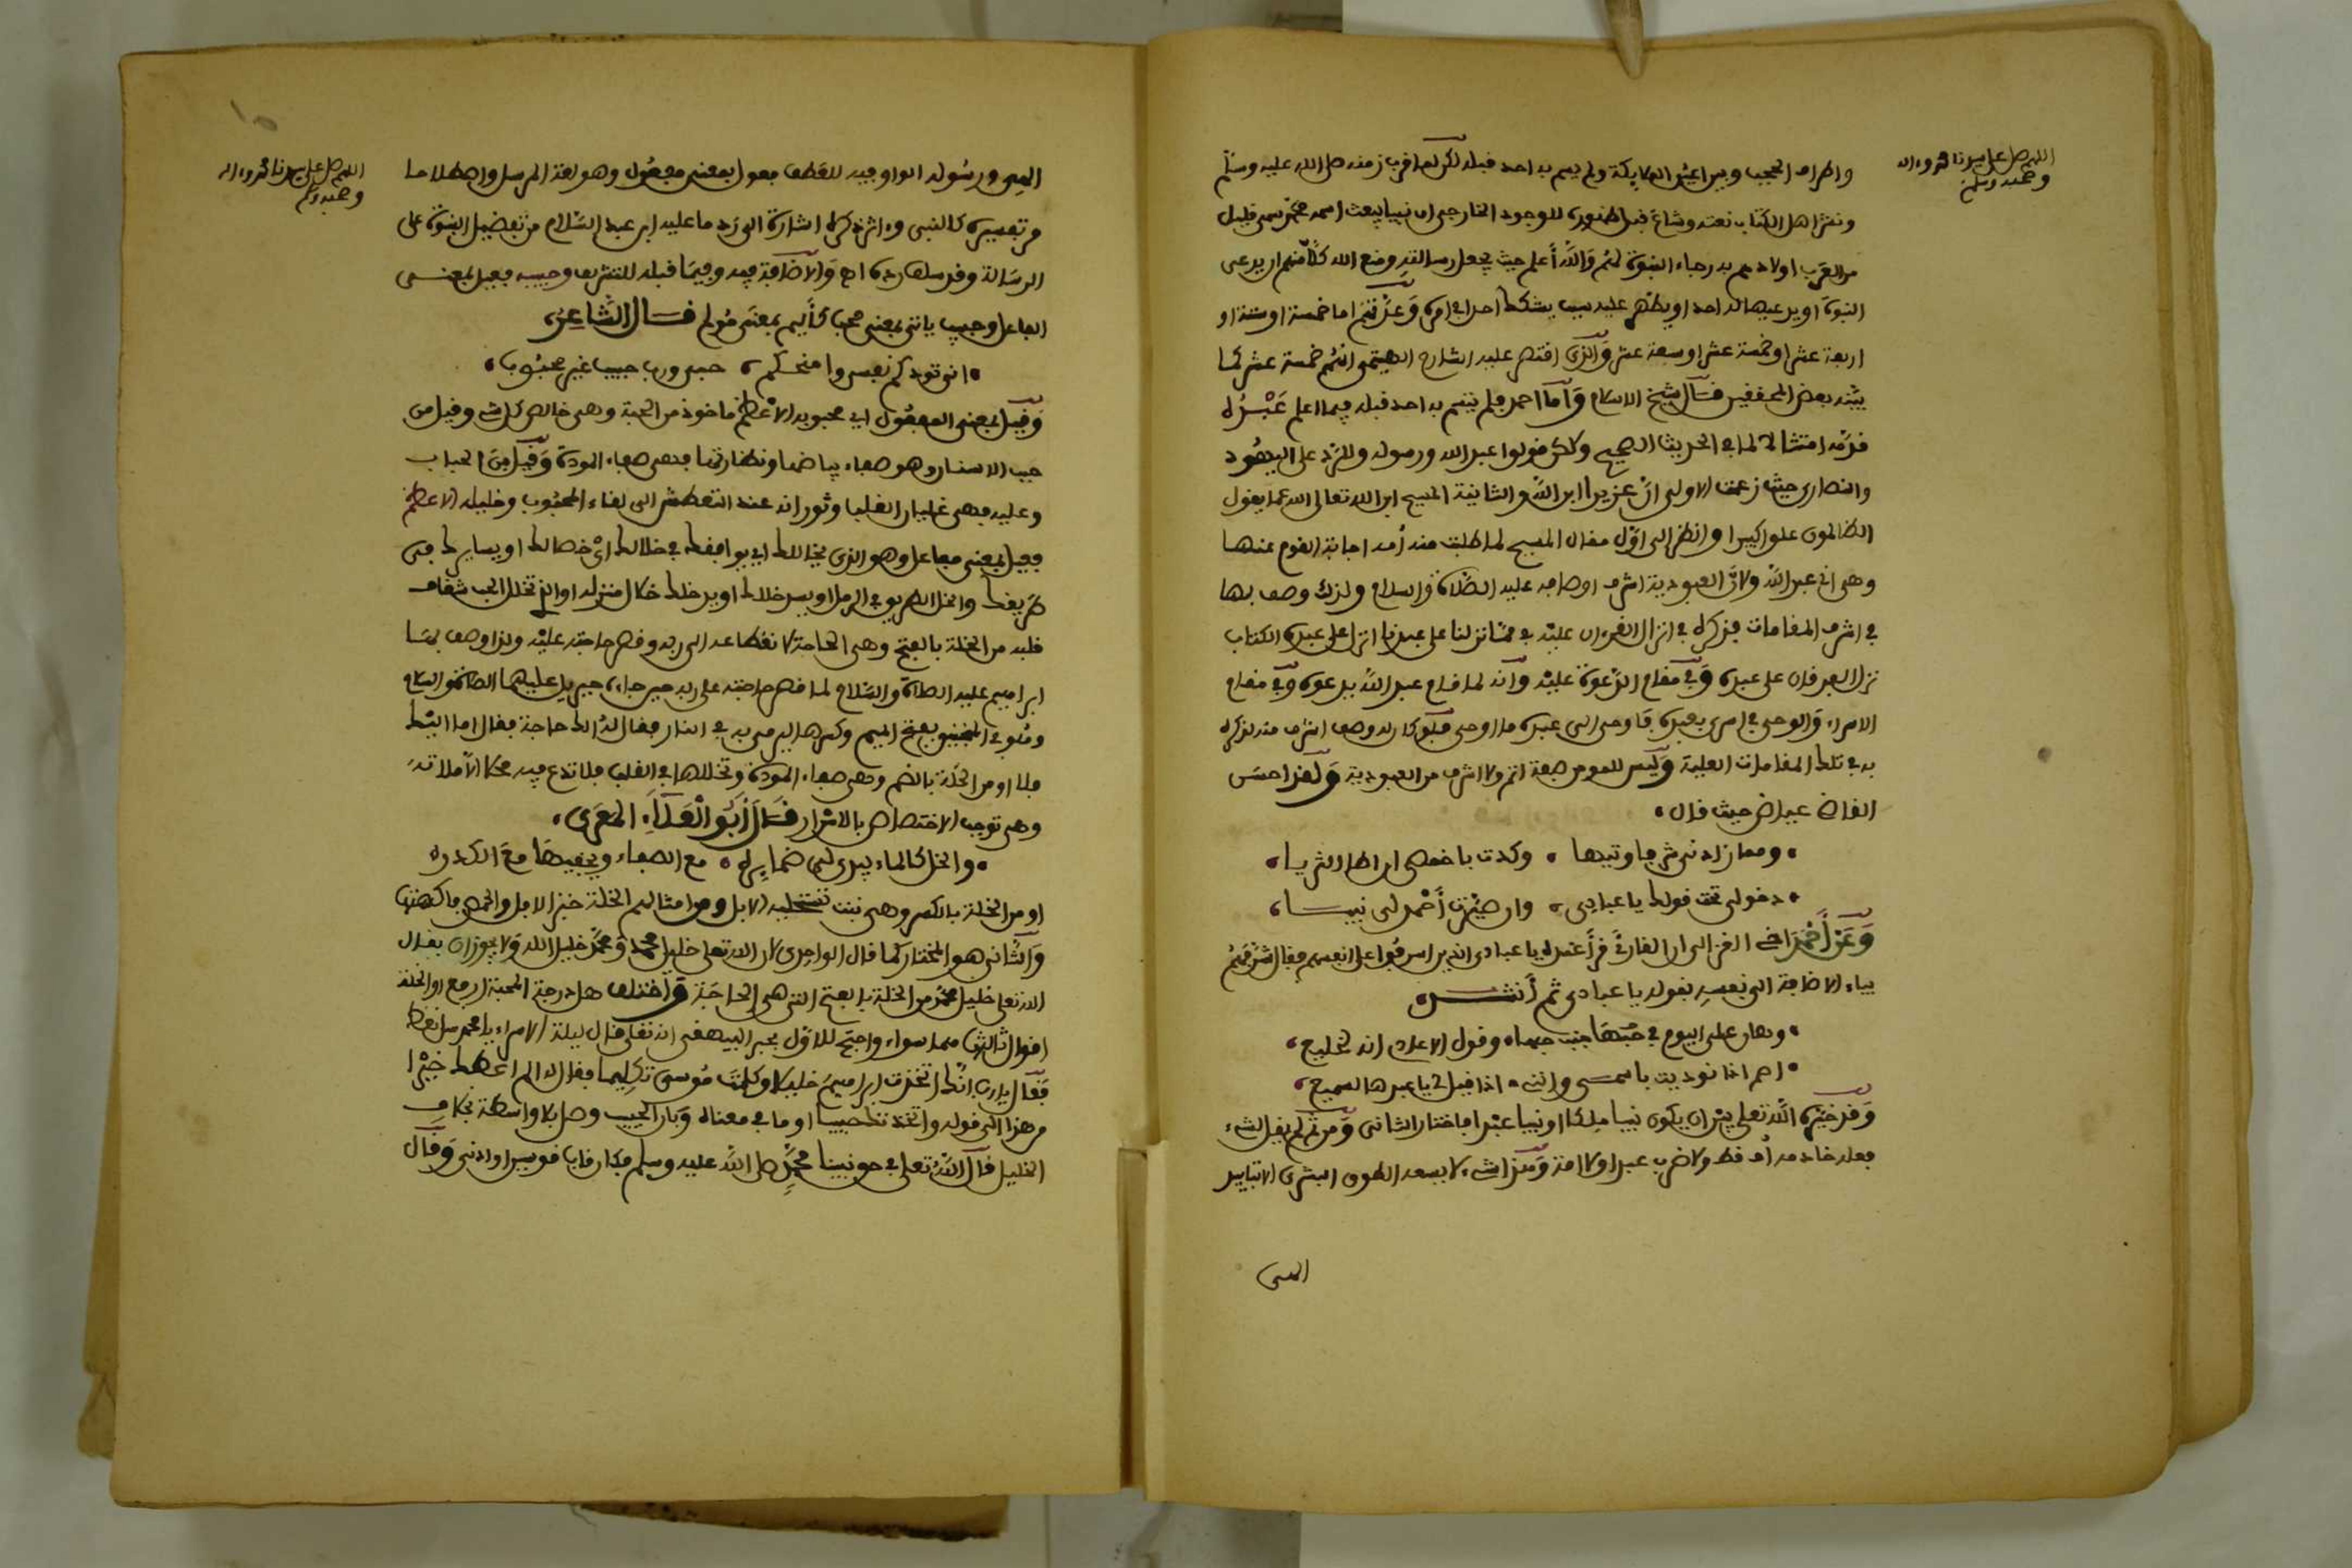 اللهم صل على سيدنا محمد وءاله
وصحبه وسلم
واطراف الحجب وبين اعين الملايكة ولم يسم به احد قبله لكن لما قرب زمنه صلى الله عليه وسلم
ونشر اهل الكتاب نعته وشاع قبل ظهوره للوجود الخارجي ان نبيا يبعث اسمه محمد سمى قليل
من العرب اولادهم به رجاء النبوة لهم والله أعلم حيث يجعل رسالته ومنع الله كلا منهم ان يدعى
النبوة او يدعيها له احد او يظهر عليه سبب يشكك احدا في امره وعدتهم اما خمسة او ستة او
اربعة عشر او خمسة عشر او سبعة عشر والذى اقتصر عليه الشارح الهيتمى انهم خمسة عشر كما
بينه بعض المحققين قال شيخ الاسلام وأما احمد فلم يتسم به احد قبله فيما اعلم عبده
قدمه امتثالا لما في الحديث الصحيح ولكن قولوا عبد الله ورسوله وللرد على اليهود
والنصارى حيث زعمت الاولى ان عزيرا ابن الله والثانية المسيح ابن الله تعالى الله عما يقول
الظالمون علوا كبيرا وانظر الى اول مقال المسيح لما طلبت منه أمه اجابة القوم عنها
وهى انى عبد الله ولان العبودية اشرف اوصافه عليه الصلاة والسلام ولذلك وصف بها
في اشرف المقامات فذكره في انزال القرءان عليه في مما نزلنا على عبدنا انزل على عبده الكتاب
نزل الفرقان على عبده وفي مقام الدعوة عليه وأنه لما قام عبد الله يدعوه وفي مقام
الاسراء والوحى في اسرى بعبده فاوحى الى عبده ما اوحى فلو كان له وصف اشرف منه لذكره
به في تلك المقامات العلية وليس للمومن صفة اتم ولا اشرف من العبودية ولقد احسن
القاضى عياض حيث قال
ومما زادنى شرفا وتيها وكدت باخمصى ان اطا الثريا
دخولى تحت قولك يا عبادى وان صيرت أحمد لى نبيا
وعن أحمد اخى الغزالى ان القارئ قرأ عنده يا عبادى الذين اسرفوا على انفسهم فقال شرفهم
بياء الاضافة الى نفسه بقوله يا عبادى ثم أنشد
وهان على اليوم في حبها وقول الاعادى انه لخليع
اصم اذا نوديت باسمى وإننى اذا قيل لى يا عبدها لسميع
وقد خيره الله تعلى بين ان يكون نبيا ملكا او نبيا عبدا فاختار الثانى ومن ثم لم يقل لشىء
فعله خادمه أف قط ولا ضرب عبدا ولا امة وهذا شىء لا يسعه الطوق البشرى الا بتاييد
الهى
اللهم صل على سيدنا محمد وءاله
وصحبه وسلم
الهى ورسوله الواو فيه للعطف فعول بمعنى مفعول وهو لغة المرسل واصطلاحا
مر تفسيره كالنبى وءاثر ذكره اشارة الى رد ما عليه ابن عبد السلام من تفضيل النبوة على
الرسالة وقد سلف رده اهـ والاضافة فيه وفيما قبله للتشريف وحبيبه فعيل بمعنى
الفاعل وحبيب ياتى بمعنى محب كأليم بمعنى مولم قال الشاعر
حبى ورب حبيب غير محبوب
وقيل بمعنى المفعول اى محبوبه الاعظم ماخوذ من المحبة وهى خالص كل شىء وقيل من
حبب الاسنان وهو صفاء بياضها ونضارتها فهى صفاء المودة وقيل من الحباب
وعليه فهى غليان القلب وثورانه عند التعطش الى لقاء المحبوب وخليله الاعظم
فعيل بمعنى مفاعل وهو الذى يخاللك اى يوافقك في خلالك اى خصالك او يسايرك في
طريقك والخل الطريق في الرمل او يسد خللك او يدخلك خلال منزله او الذى تخلل الحب شغاف
قلبه من الخلة بالفتح وهى الحاجة لانقطاعه الى ربه وقصر حاجته عليه ولذا وصف بها
ابراهيم عليه الصلاة والسلام لما قصر حاجته على ربه حين جاءه جبريل عليهما الصلاة والسلام
وهو في المنجنيق بفتح الميم وكسرها ليرمى به في النار فقال له الك حاجة فقال اما اليك
فلا او من الخلة بالضم وهى صفاء المودة وتخللها في القلب فلا تدع فيه محلا إلا ملاته
وهى توجب الاختصاص بالاسرار قال أبو العلاء المعرى
والخل كالماء يبدى لى ضمايره مع الصفاء ويخفيها مع الكدر
او من الخلة بالكسر وهى نبت تستحليه الابل ومن امثالهم الخلة خبز الابل والحمض فاكهتها
والثانى هو المختار كما قال الواحدى لان الله تعلى خليل محمد ومحمد خليل الله ولا يجوز ان يقال
الله تعلى خليل محمد من الخلة بالفتح التى هى الحاجة واختلف هل درجة المحبة ارفع او الخلة
اقوال ثالثها هما سواء واحتج للاول بخبر البيهقى انه تعلى قال ليلة الاسراء يا محمد سل تعط
فقال يا رب انك اتخذت ابراهيم خليلا وكلمت موسى تكليما فقال الم اعطك خيرا
من هذا الى قوله واتخذتك حبيبا او ما في معناه وبان الحبيب وصل بلا واسطة بخلاف
الخليل قال الله تعلى في حق نبينا محمد صلى الله عليه وسلم فكان قاب قوسين او ادنى وقال